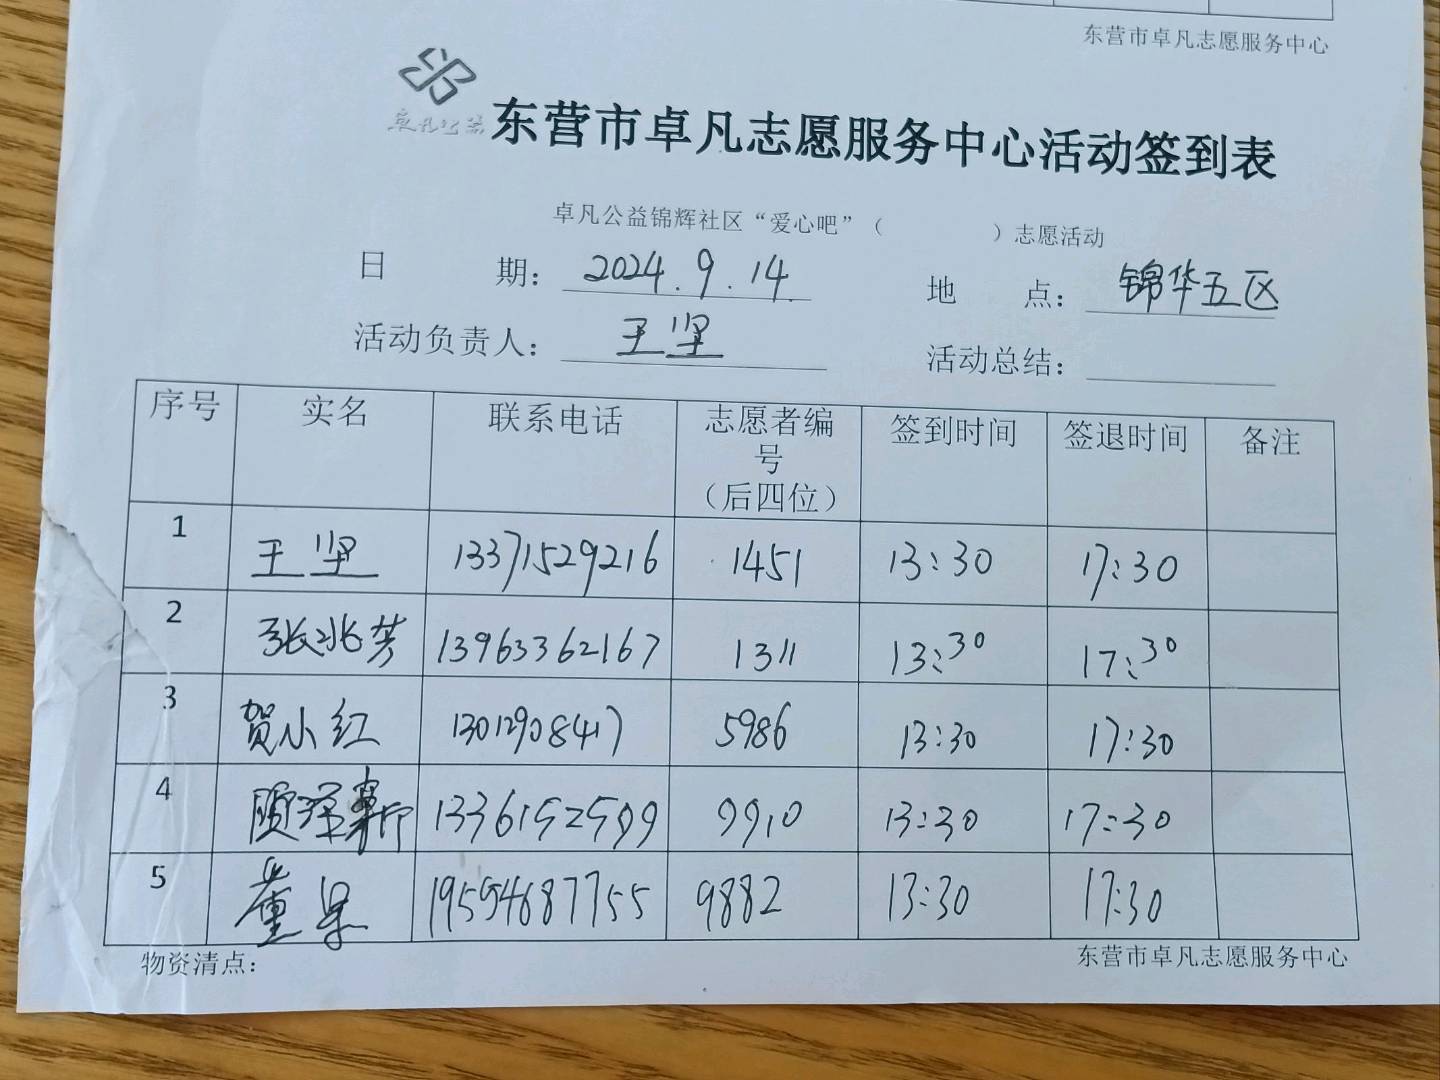 东营市卓凡志愿服务中心
卓凡公益
东营市卓凡志愿服务中心活动签到表
卓凡公益锦辉社区“爱心吧”（ ）志愿活动
日 期： 2024.9.14. 地 点： 锦华五区
活动负责人： 王坚 活动总结：
序号 实名 联系电话 志愿者编号（后四位） 签到时间 签退时间 备注
1 王坚 13371529216 1451 13:30 17:30
2 张兆芳 13963362167 1311 13:30 17:30
3 贺小红 13012908417 5986 13:30 17:30
4 顾泽新 13361525999 9910 13:30 17:30
5 董杲 19554687755 9882 13:30 17:30
物资清点： 东营市卓凡志愿服务中心